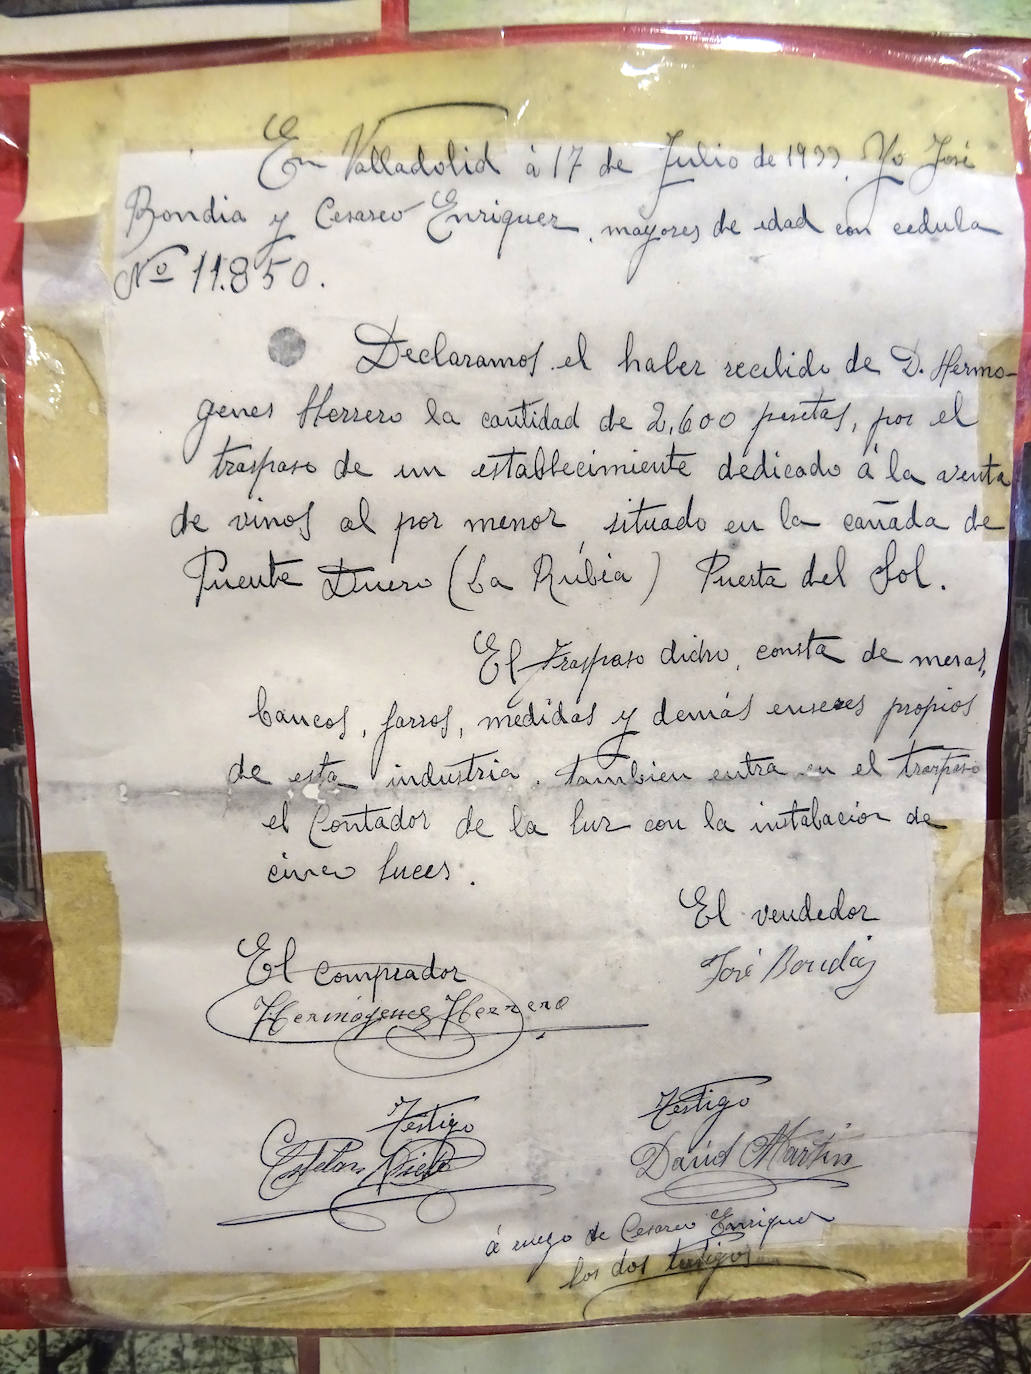 En Valladolid á 17 de Julio de 1933. Yo José
Bondia y Cesareo Enriquez, mayores de edad con cedula
Nº 11.850.
Declaramos el haber recibido de D. Hermo-
genes Herrero la cantidad de 2,600 pesetas, por el
traspaso de un establecimiente dedicado á la venta
de vinos al por menor, situado en la cañada de
Puente Duero (La Rúbia) Puerta del Sol.
El traspaso dicho, consta de mesas,
bancos, jarros, medidas y demás enseres propios
de esta industria. tambien entra en el traspaso
el Contador de la luz con la instalacion de
cinco luces.
El vendedor
José Bondía
El comprador
Hermógenes Herrero
Testigo
Testigo
Esteban Nieto
David Martin
á ruego de Cesareo Enriquez
los dos testigos